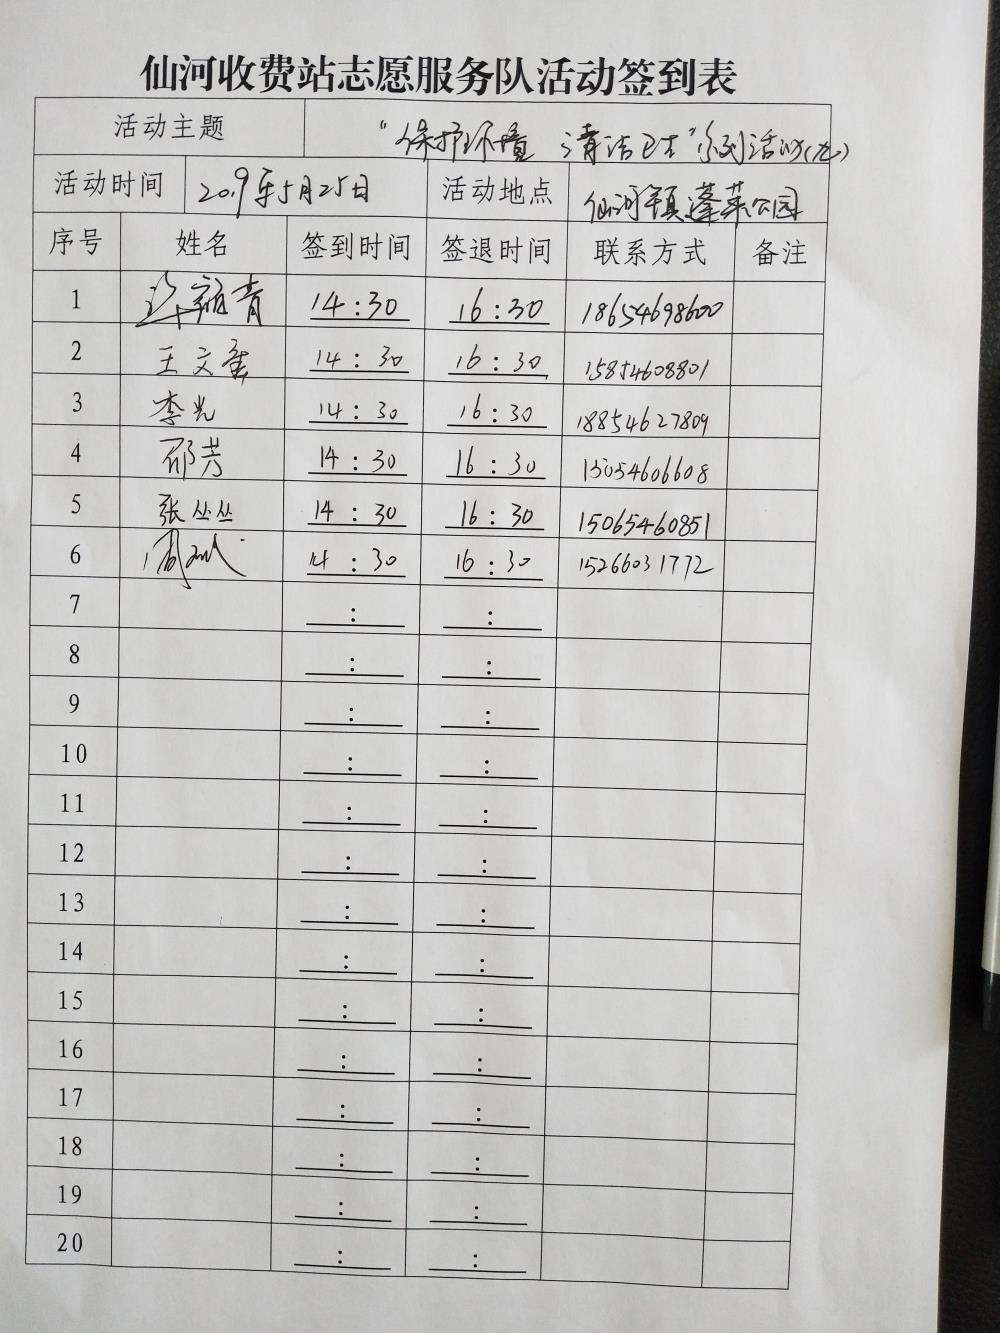 仙河收费站志愿服务队活动签到表
活动主题 "保护环境 清洁卫生"系列活动(九)
活动时间 2019年5月25日 活动地点 仙河镇蓬莱公园
序号 姓名 签到时间 签退时间 联系方式 备注
1 14:30 16:30 18654698600
2 王文 14:30 16:30 15854608801
3 李光 14:30 16:30 18854627809
4 邵芳 14:30 16:30 15054606608
5 张丛丛 14:30 16:30 15065460851
6 周斌 14:30 16:30 15266031772
7 : :
8 : :
9 : :
10 : :
11 : :
12 : :
13 : :
14 : :
15 : :
16 : :
17 : :
18 : :
19 : :
20 : :